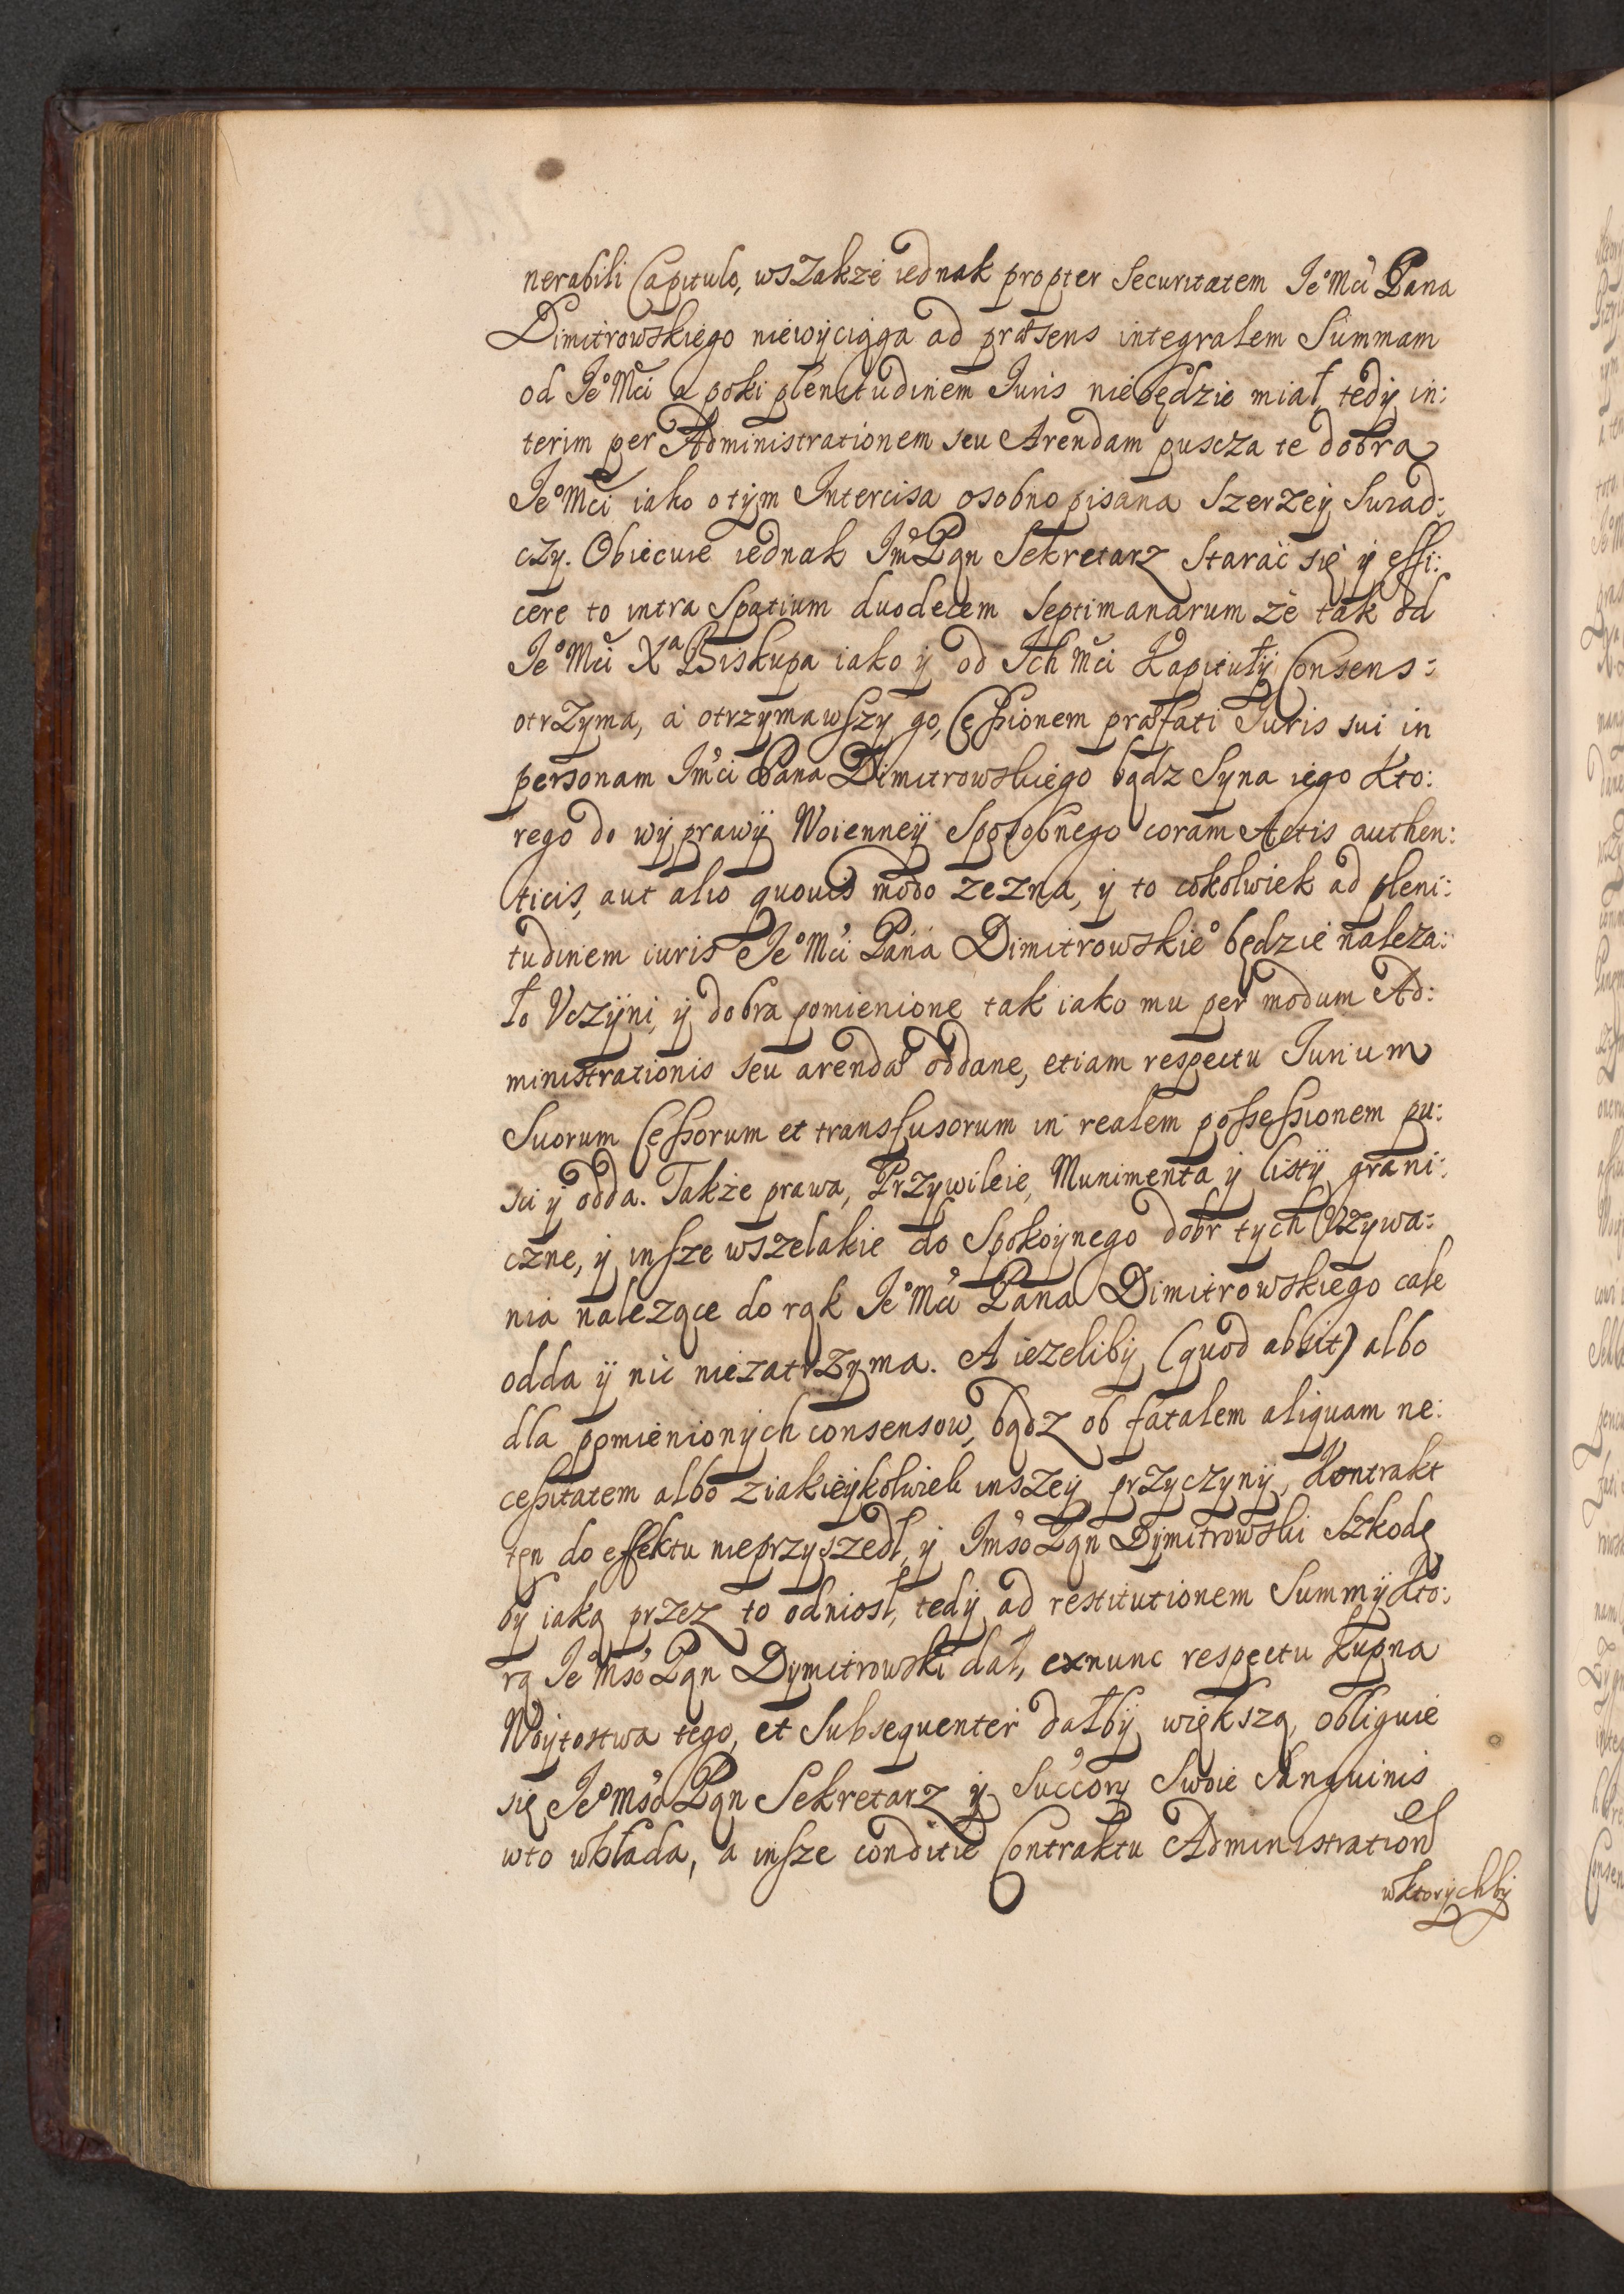 nerabili Capitulo, wszakże iednak propter Securitatem Jeº Mci Pana
Dimitrowskiego niewyciąga ad præsens integralem Summam
od Jeº Mci a poki plenitudinem Juris niebędzie miał, tedÿ in:
terim per Administrationem seu Arendam puscza te dobra
Jeº Mci iako otÿm Intercisa osobno pisana Szerzeÿ Swiad:
czy. Obiecuie iednak Jmº Pąn Sekretarz Starać się ÿ effi:
cere to intra Spatium duodecem Septimanarum że tak od
Jeº Mci Xª Biskupa iako ÿ od Ich Mci Kapitułÿ Consens:
otrzyma, a otrzymawszy go, Cessionem præfati Juris sui in
personam Jmci Pana Dimitrowskiego bądz Syna iego kto:
rego do wÿprawÿ Woienneÿ Sposobnego coram Actis authen:
ticis, aut alio quovis modo zezna, ÿ to cokolwiek ad pleni:
tudinem iuris Jeº Mci Pana Dimitrowskieº będzie należa:
ło Vczÿni, ÿ dobra pomienione tak iako mu per modum Ad:
ministrationis seu arendæ oddane, etiam respectu Jurium
Suorum Cessorum et transfusorum in realem possessionem pu:
sci ÿ odda. Także prawa, Przywileie, Munimenta ÿ listÿ grani:
czne, ÿ insze wszelakie do Spokoÿnego dobr tych Vzywa:
nia nalezące do rąk Jeº Mci Pana Dimitrowskiego całe
odda ÿ nic niezatrzyma. A iezelibÿ (quod absit) albo
dla pomienionÿch consensow, bądz ob fatalem aliquam ne:
cessitatem albo ziakieÿkolwiek inszeÿ przyczynÿ, Kontrakt
ten do effektu nieprzyszedł, ÿ Jmsº Pąn Dymitrowski Szkodę
by iaką przez to odniosł, tedÿ ad restitutionem Summÿ kto:
rą Jeº Msº Pąn Dymitrowski dał, exnunc respectu Kupna
Woÿtostwa tego, et Subsequenter dałbÿ większą, obliguie
się Jeº Msº Pąn Sekretarz ÿ Succory Swoie Sanguinis
wto wkłada, a insze conditie Contraktu Administration
wktorÿchbÿ